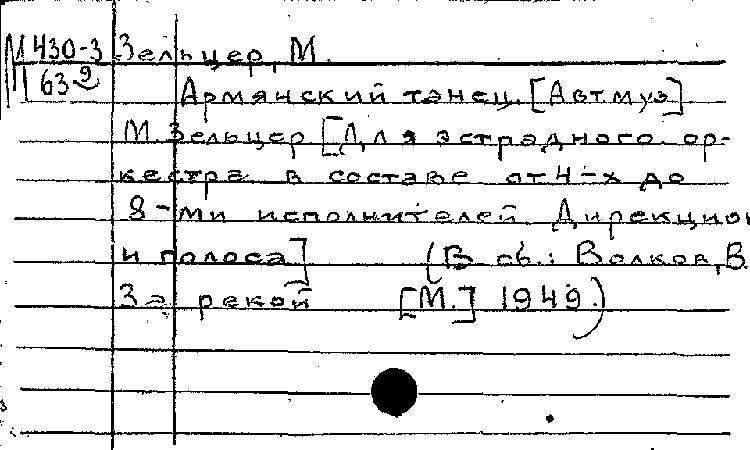 М 430-3 Зельцер, М.
63 9 Армянский танец. [Авт. муз]
М. Зельцер [Для эстрадного ор-
кестра в составе от 4-х до
8-ми исполнителей. Дирекцион
и голоса] (В сб.: Волков, В.
За рекой [М.] 1949.)